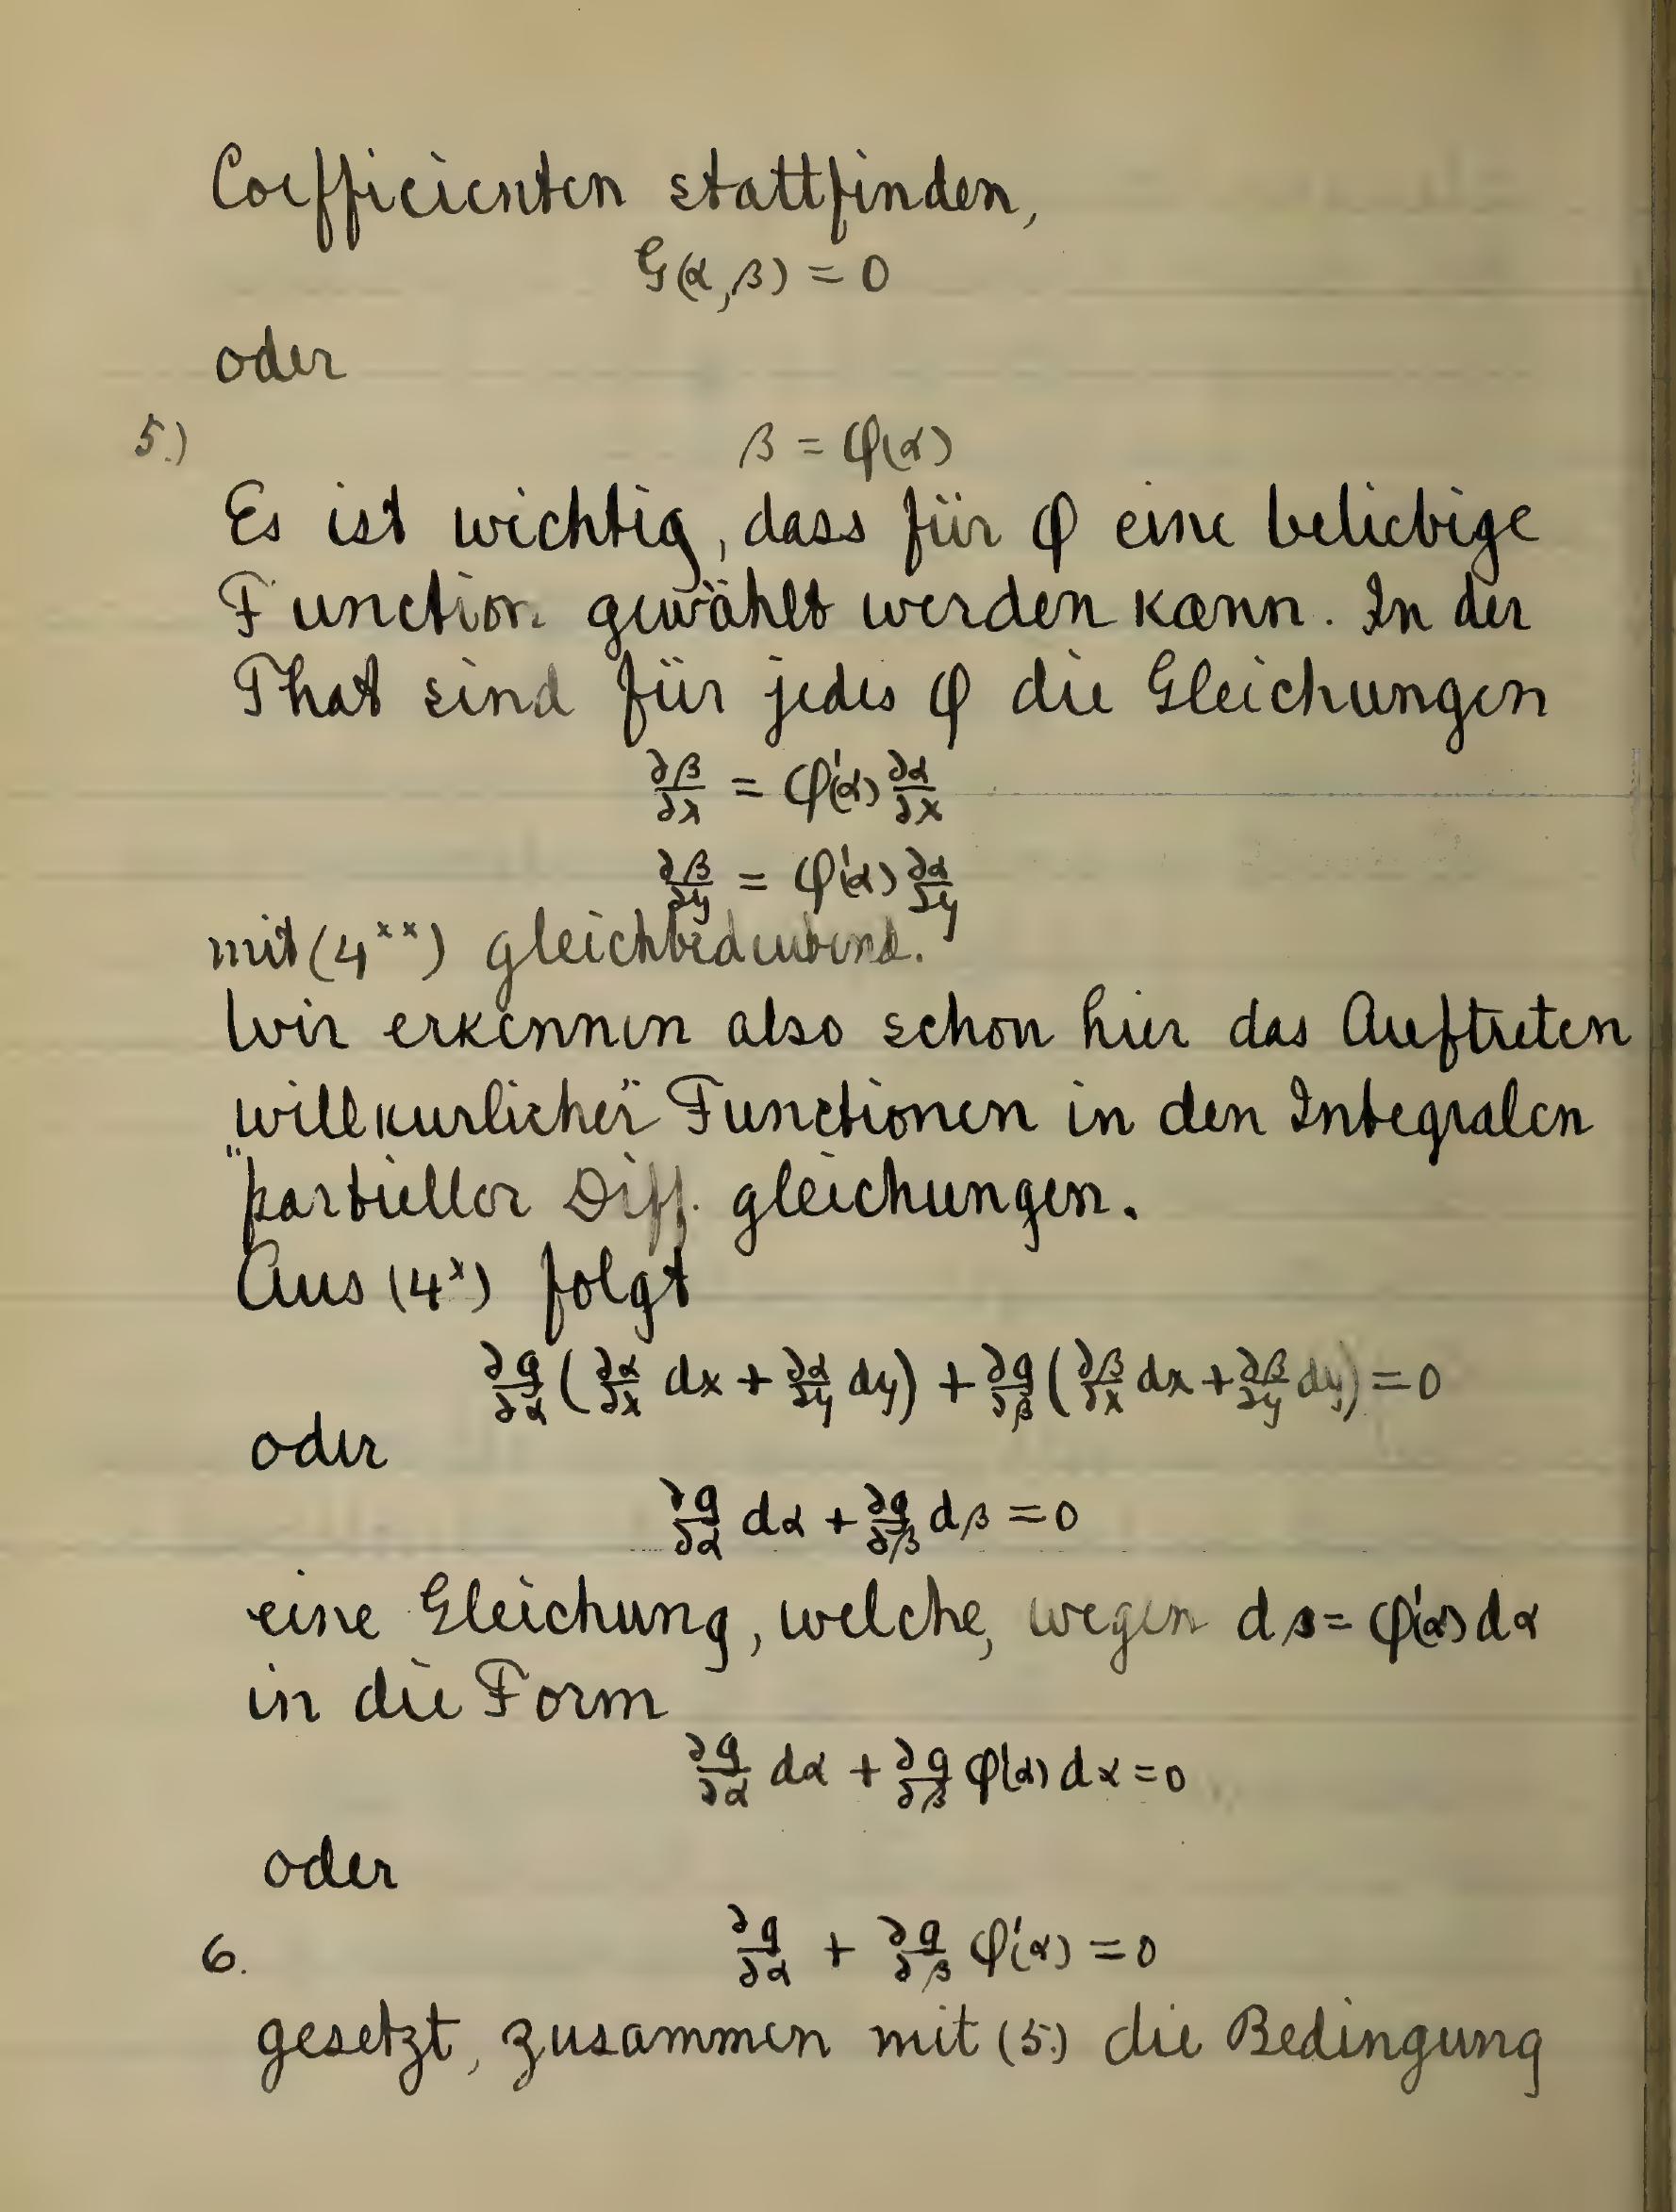 Coefficienten stattfinden,
G(α,β) = 0
oder
5.) β = φ(α)
Es ist wichtig, dass für φ eine beliebige
Function gewählt werden kann. In der
That sind für jedes φ die Gleichungen
∂β/∂x = φ'(α) ∂α/∂x
∂β/∂y = φ'(α) ∂α/∂y
mit (4××) gleichbedeutend.
Wir erkennen also schon hier das Auftreten
„willkurlicher" Functionen in den Integralen
partieller Diff. gleichungen.
Aus (4×) folgt
∂g/∂α (∂α/∂x dx + ∂α/∂y dy) + ∂g/∂β (∂β/∂x dx + ∂β/∂y dy) = 0
oder
∂g/∂α dα + ∂g/∂β dβ = 0
eine Gleichung, welche, wegen dβ = φ'(α) dα
in die Form
∂g/∂α dα + ∂g/∂β φ'(α) dα = 0
oder
6. ∂g/∂α + ∂g/∂β φ'(α) = 0
gesetzt, zusammen mit (5.) die Bedingung